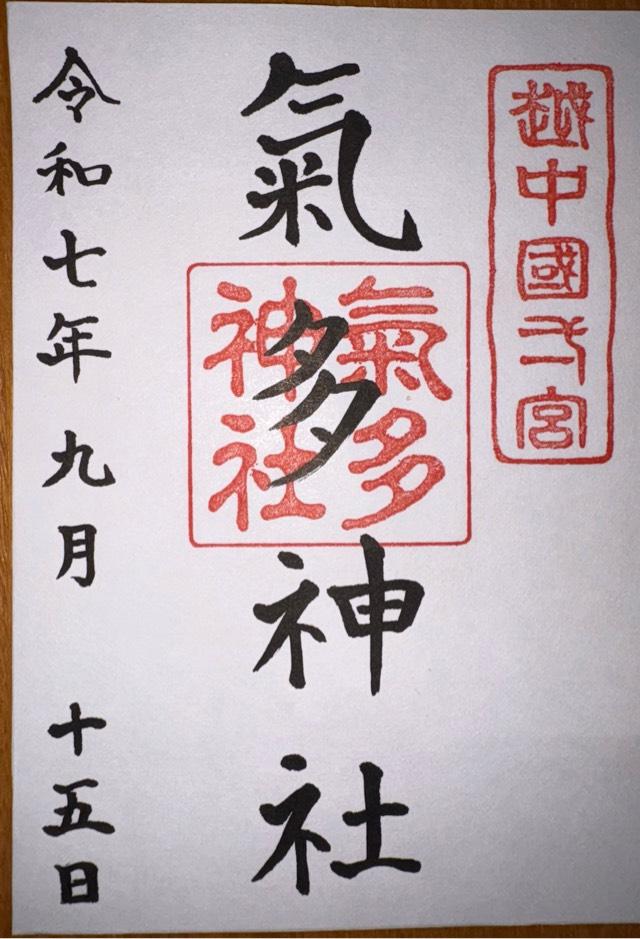 越中國弌宮
氣多神社
氣多
神社
令和七年九月十五日